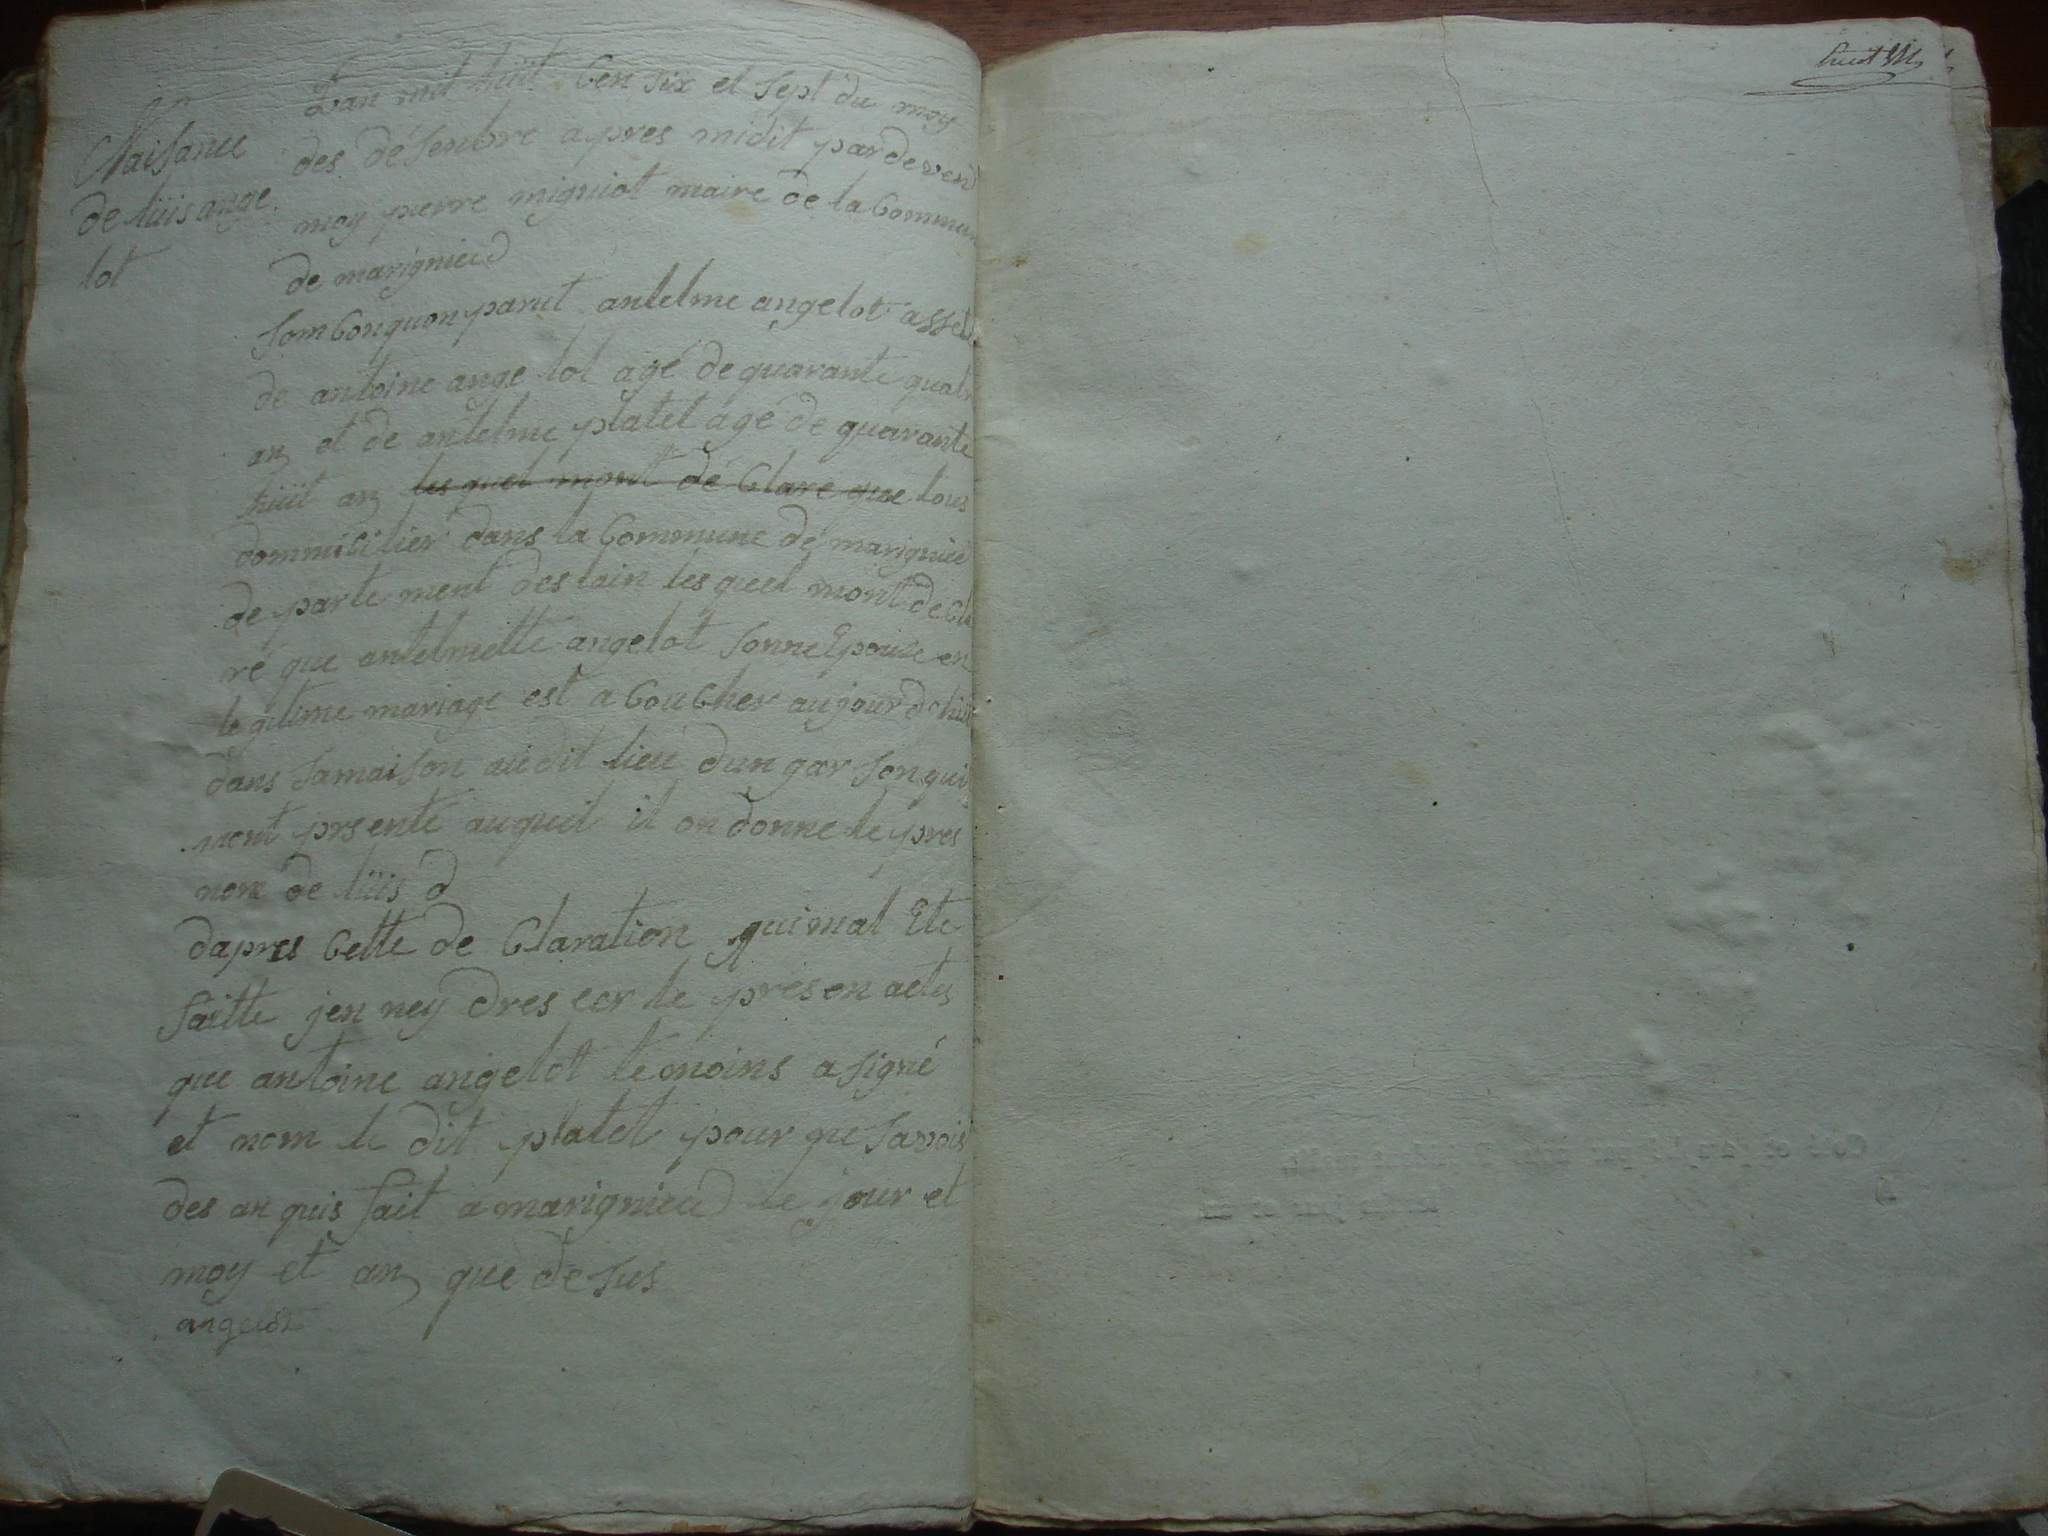 Naisance
de lüis ange
lot
Lan mil hüit Cen six et sept du moy
des désenbre apres midit pardeven
moy pierre migniot maire de la Commun
de marignieu
antelme angelot asset
de antoine ange lot agé de quarante quatr
an et de antelme platel agé de quarante
hüit an les quel mont dé Claré que tous
dommicilier dans la Commune de marignieu
de parte ment des lain les quel mont de Cla
ré que antelmette angelot sonne Epouse en
legitime mariage est a CouCher aujour dhüit
dans samaison audit lieu dun garson qui
mont prsenté auquel il on donne le pres
nom de lüis d
dapres Cette de Claration qui mat Ete
faitte jen ney dres eer le presen actes
que antoine angelot temoins a signé
et nom le dit platel pour ne savois
des an quis fait a marignieu le jour et
moy et an que de sus
angelot